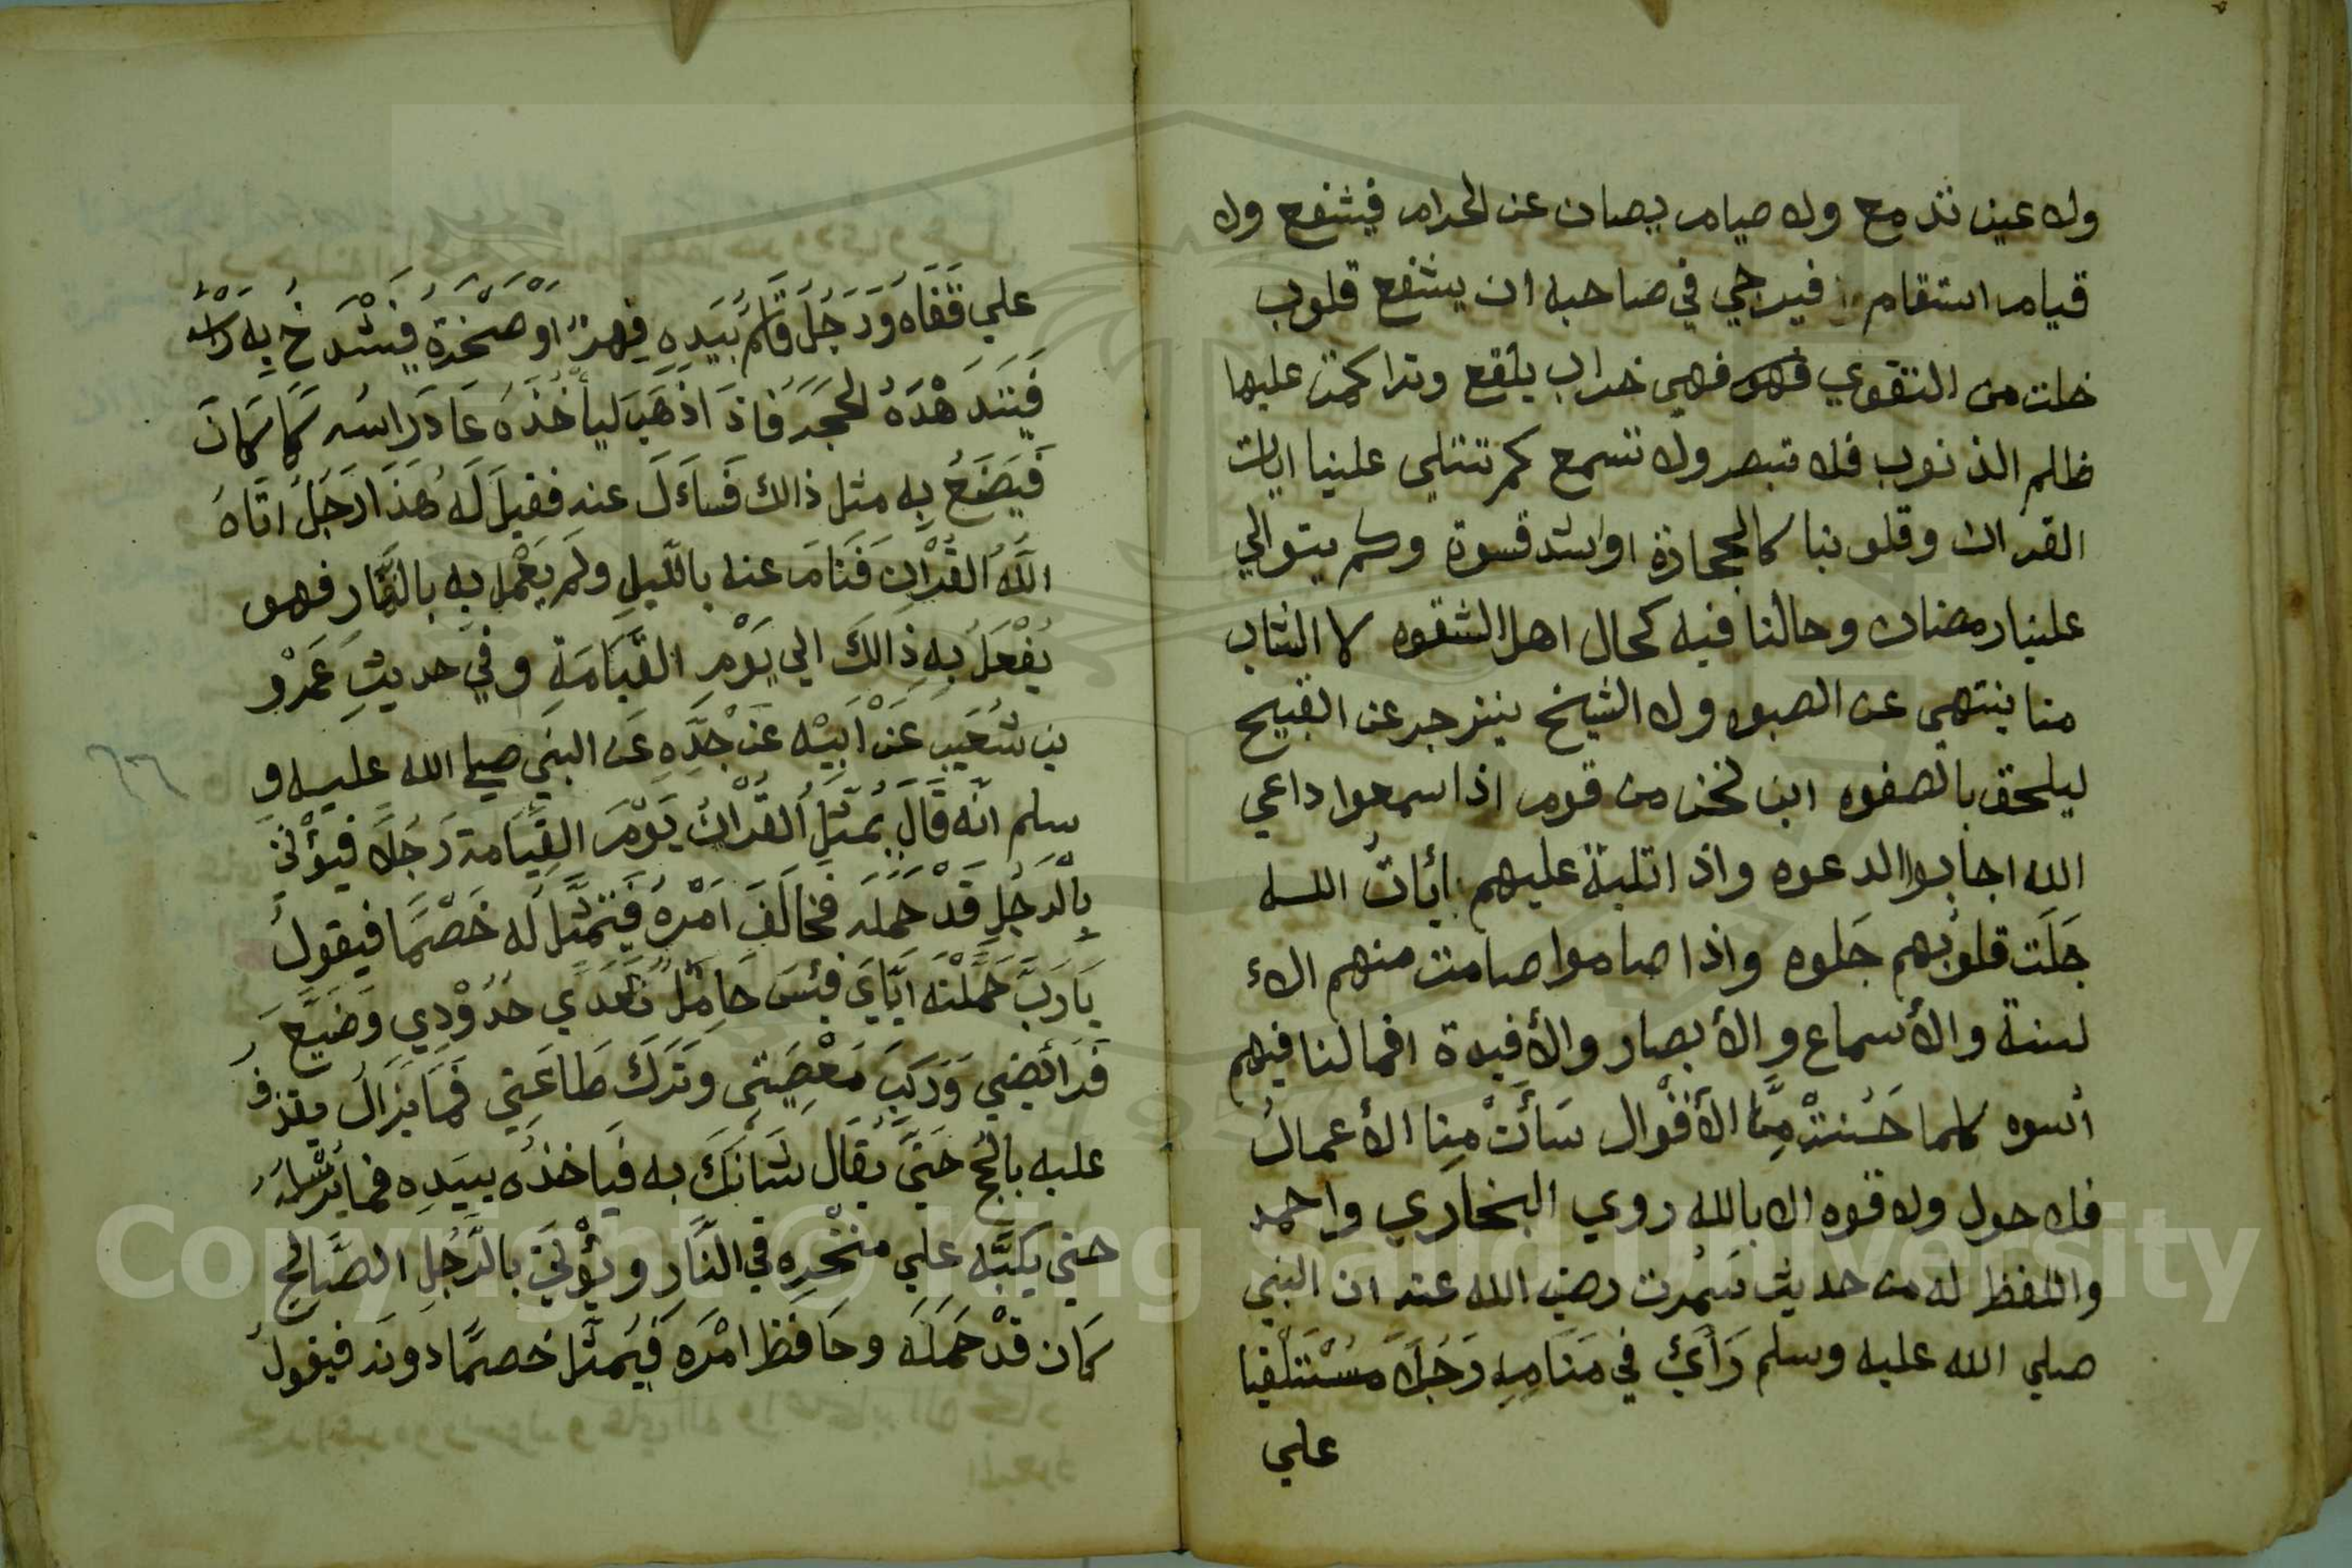 ولا عين تدمع ولا صيام يصان عن الحرام فيشفع ولا
قيام استقام فيرجي في صاحبه ان يشفع قلوب
خلت من التقوي فهي خراب بلقع وتراكمت عليها
ظلم الذنوب فلا تبصر ولا تسمع كم تتلي علينا ايات
القران وقلوبنا كالحجارة او اشد قسوة وكم يتوالي
علينا رمضان وحالنا فيه كحال اهل الشقوه لا الشاب
منا ينتهي عن الصبوه ولا الشيخ ينزجر عن القبيح
ليلحق بالصفوه اين نحن من قوم اذا سمعوا داعي
الله اجابوا الدعوه واذا تلية عليهم ايات الله
جَلَت قلوبُهم جَلوه واذا صاموا صامت منهم الاء
لسنة والأسماع والأبصار والأفيدة افما لنا فيهم
أسوه كلما حَسُنتْ مِنَّا الأقْوال سَأَتْ مِنا الأعمالُ
فلا حول ولا قوه الا بالله روي البخاري واحمد
واللفظ له من حديث سَمُرت رضي الله عنه ان النبي
صلي الله عليه وسلم رَأيَ في مَنَامِهِ رَجُلاً مُسْتَلْقيا
علي
علي قَفَاهُ وَرَجُلٌ قَائمٌ بيَدِهِ فِهرٌ اوْ صَخْرَةٌ فيَشْدَخُ بِهِ رَاسَهُ
فَيَتَدَهْدَهُ الحَجَرُ فَاذَا ذَهَبَ ليأخُذَهُ عَادَ رَاسُه كَمَا كَانَ
فَيَصْنَعُ بِهِ مثل ذالك فَسَاءَلَ عنه فقيلَ لَهُ هَذَا رَجُلٌ اتَاهُ
اللَّهُ القُرْانَ فَنَامَ عنه بالليلِ ولَم يَعْمل بِهِ بالنَّهار فهو
يُفْعَلُ بِهِ ذَالكَ الي يَوْمِ القيَامَةِ وفي حديثِ عَمْرو
بن شُعَيب عَنْ أبيْه عَنْ جَدِّهِ عَن النبي صلي الله عليه و
سلم انّه قَالَ يُمَثَّلُ القُرْانُ يَوْمَ القِيَامَة رَجُلاً فَيُؤْتَى
بِالرَجُلِ قَدْ حَمَلَه فخالَفَ اَمْرَهُ فَيَتمَثَّلُ لَه خَصْمًا فيقولُ
يَا رَبّ حَمَّلْتَه ايَّايَ فبئسَ حَامِلٌ تعَدَّي حُدُوْدِي وَضَيَّعَ
فَرَائضِي وَرَكبَ مَعْصِيَتِي وتَرَكَ طَاعَتِي فَمَا يَزَالُ يقذف
عليه بالحُجج حَتَّي يُقَال شَانَكَ به فيَاخذُه بيَدِه فما يُرْسِلهُ
حتي يكُبَّه علي منْخَرِه في النَّار ويُؤْتَى بالرَّجُلِ الصَّالح
كَان قدْ حَمَلَه وحَافَظَ امْرَه فيُمثّل خصمًا دونَه فيقولُ
٦٦
Copyright © King Saud University
1957